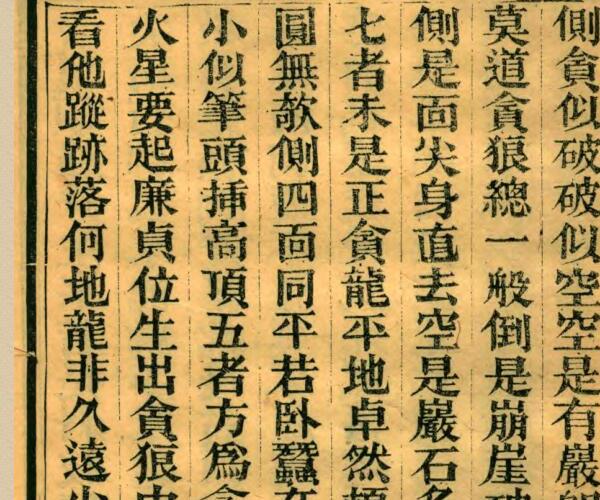 側貪似破破似空空是有巖
莫道貪狼總一般倒是崩崖
側是面尖身直去空是巖石
七者未是正貪龍平地卓然
圓無欹側四面同平若臥蠶
小似筆頭揷高頂五者方爲
火星要起廉貞位生出貪狼
看他蹤跡落何地龍非久遠